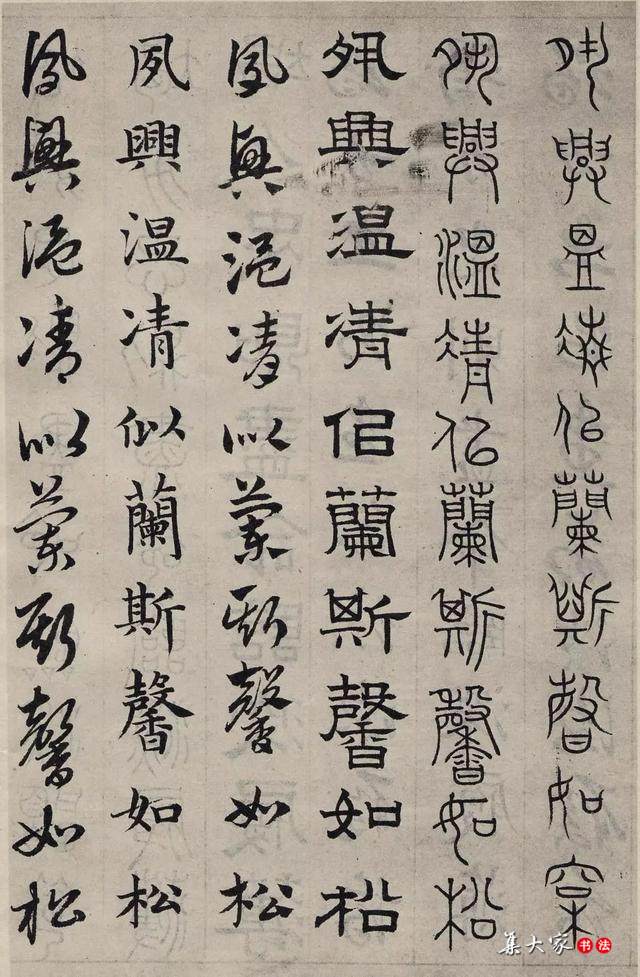 夙興昷凊佀蘭斯馨如松
夙興溫凊佀蘭斯馨如松
夙興温凊佀蘭斯馨如松
夙興温凊以蘭斯馨如松
夙興温凊似蘭斯馨如松
夙興温凊以蘭斯馨如松
集大家书法